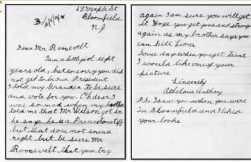 18 Maple St
Bloomfield
N.J.
Dear Mr. Roosevelt
I am a little girl eight
years old, but so sorry you did
not get to be a President
I told my Grandpa to be sure
and vote for you. I didn't
was a
told me that Mr Wilson got in
he says he is a
but that does not sound
right but be sure Mr
Roosevelt that you try
again I am sure you will get
it I hope you get good and strong
again as my brother says you
can kill lions
Some day when you get time
I would like one of your
picture
Sincerely
Adeline Anthony
P.S. I saw you when you were
in Bloomfield and I liked
your looks